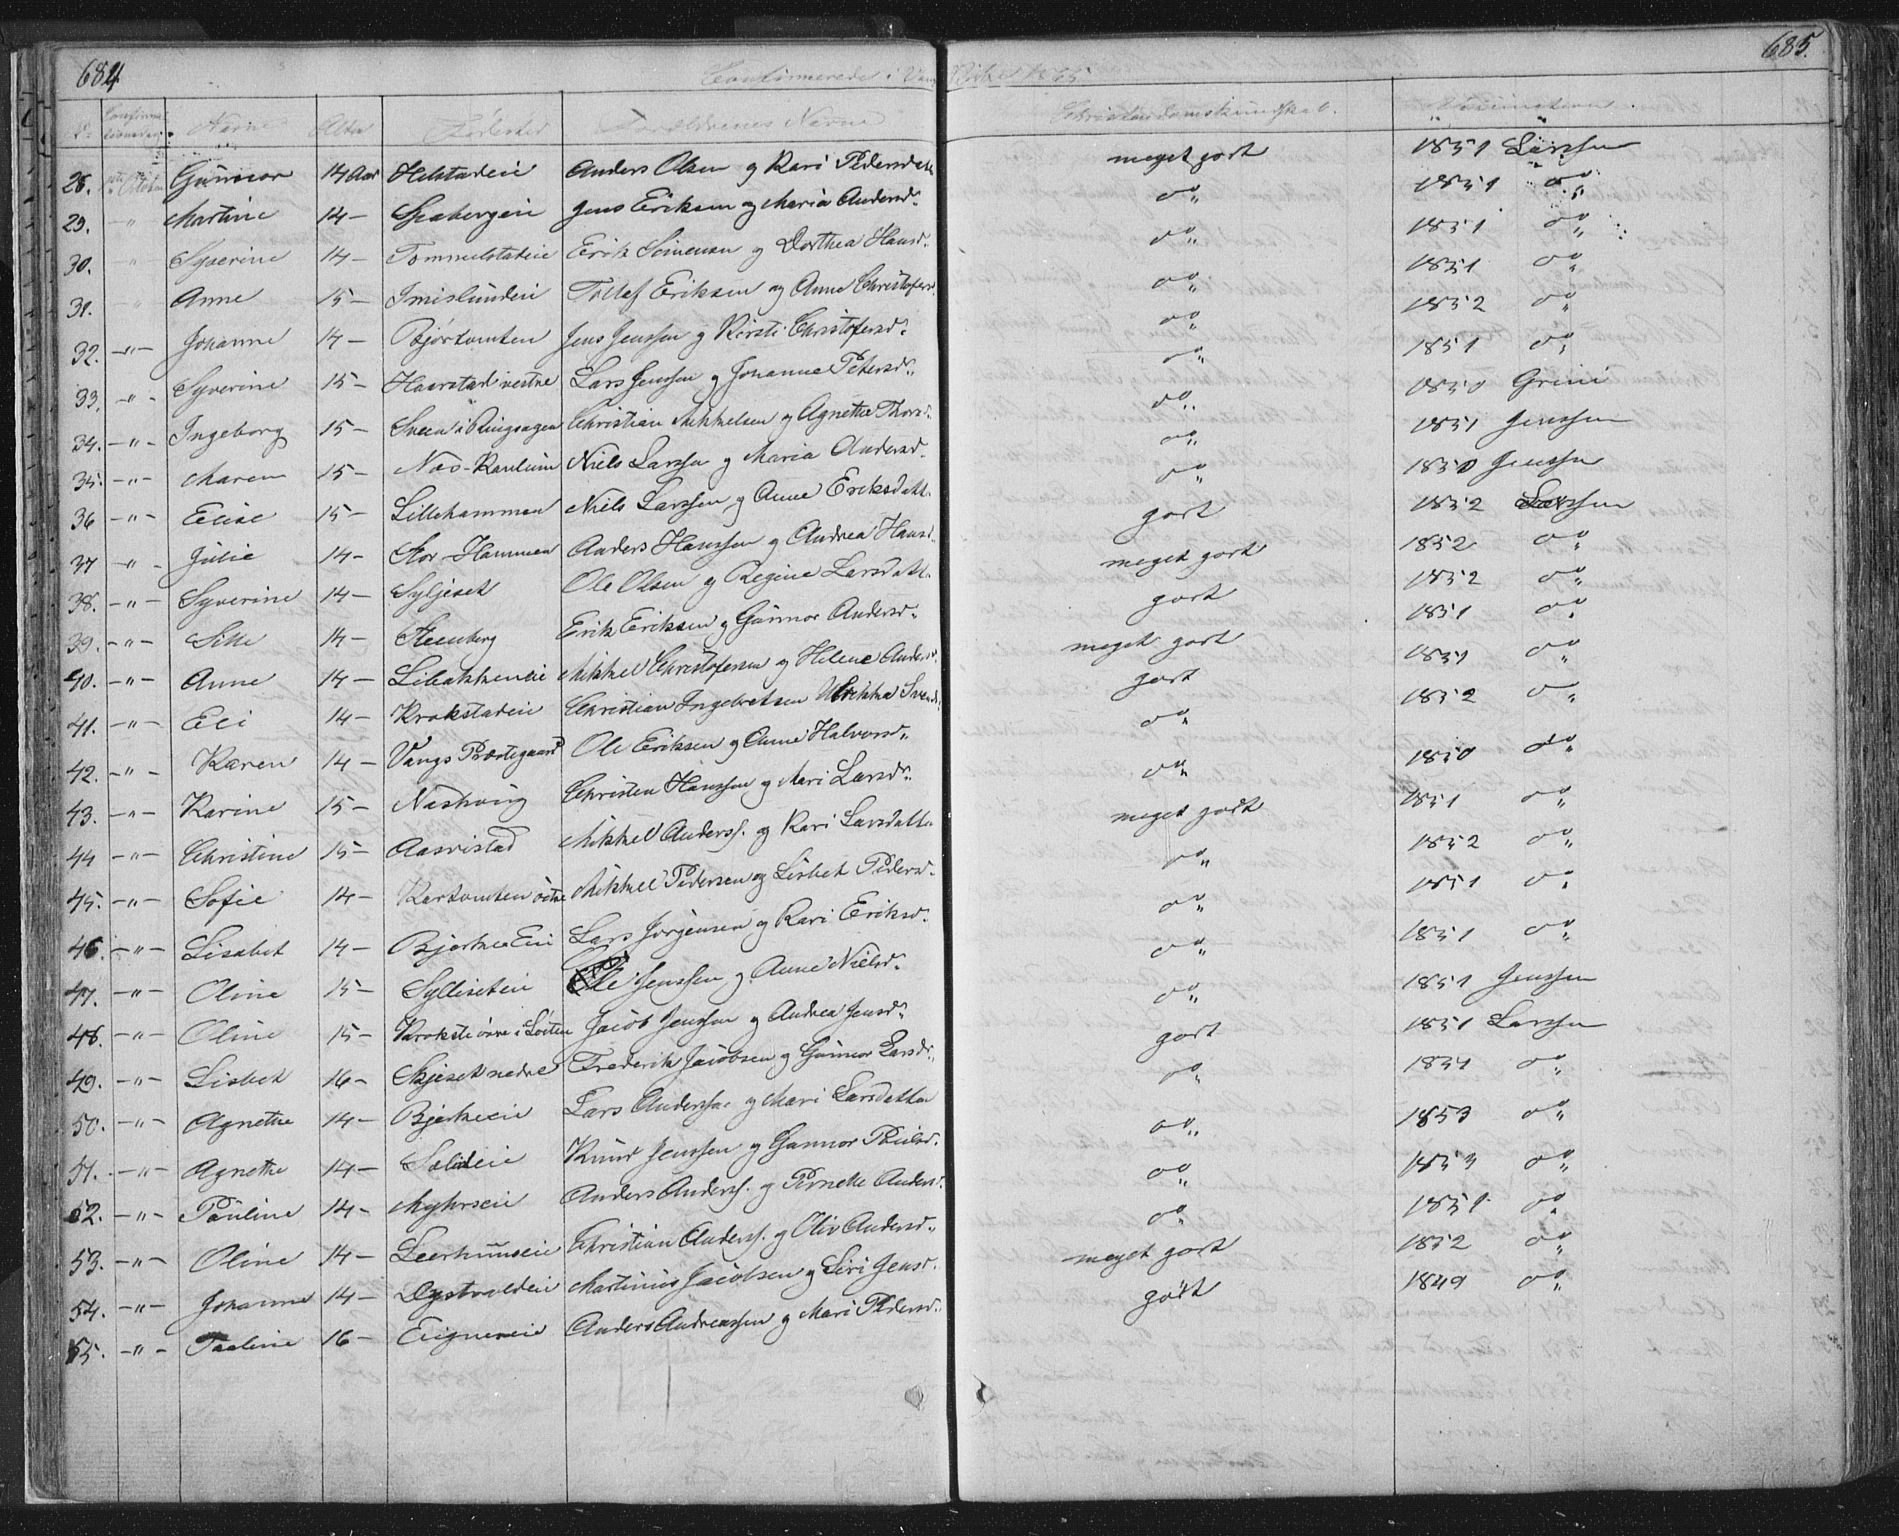 684 Confirmerede i Vang Kirke 1865 685.
No Confirmationsdag. Navne Alder Fødested Forældrenes Navne Christendomskundskab. Vaccinations
28. Octobr Gunnor 14 Aar Helstadeie Anders Olsen og Kari Pedersdatt meget godt 1851 Larssen
29. -"- Martine 14 - Spabergeie Jens Eriksen og Maria Andersd. do 1851 do
30. -"- Syverine 14 - Tommelstadeie Erik Simensen og Dorthea Hansd. do 1851 do
31. Anne 15 - Imislundeie Tollef Eriksen og Anne Christofersd. do 1851 do
32. -"- Johanne 14 - Bjørtomten Jens Jenssen og Kirsti Christofersd. do 1852 do
33. -"- Syverine 15 - Haarstad vestre Lars Jenssen og Johanne Petersd. do 1851 do
34. -"- Ingeborg 15 - Sveen i Ringsager Christian Mikkelsen og Agnethe Thorsd. do 1850 Grini
35. -"- Maren 15 - Næs-Kaulum Niels Larssen og Maria Andersd. do 1851 Jenssen
36 -"- Elise 15 - Lillehammer Niels Larssen og Anne Eriksdatt. do 1850 Jenssen
37 -"- Julie 14 - Stor-Hammer Anders Hanssen og Andrea Hansd. godt 1852 Larssen
38. -"- Syverine 14 - Syljeset Ole Olsen og Regine Larsdatt. meget godt 1852 do
39. -"- Sille 14 - Steenberg Erik Eriksen og Gunnor Andersd. godt 1852 do
40. -"- Anne 14 - Libakkeneie Mikkel Christofersen og Helene Andersd. meget godt 1851 do
41. -"- Eli 14 - Krokstadeie Christian Ingebretsen Ulrikka Svends. godt 1851 do
42. -"- Karen 14 - Vangs Præstegaard Ole Eriksen og Anne Halvorsd. do 1852 do
43. -"- Karine 15 - Nashoug Christen Hanssen og Mari Larsd. do 1850 do
44 -"- Christine 15 - Aasvistad Mikkel Anderss. og Kari Larsdatt. meget godt 1851 do
45. -"- Sofie 14 - Kartomten østre Mikkel Pedersen og Lisbet Pedersd. do 1852 do
46. -"- Lisabet 14 - Bjerke Eie Lars Jørgensen og Kari Eriksd. do 1851 do
47. -"- Oline 15 - Sylliseteie Ole Jenssen og Anne Nielsd. do 1851 do
48. -"- Oline 15 - Krokste øvre i Løiten Jacob Jenssen og Andrea Jensd. do 1851 Jenssen
49. -"- Lisbet 16 - Skjeset nedre Frederik Jacobsen og Gunnor Larsd. godt 1851 Larssen
50. -"- Agnethe 14 - Bjerkeeie Lars Anderssen og Mari Larsdatter do 1851 do
51. -"- Agnethe 14 - Solideie Knud Jenssen og Gunnor Poulsd. do 1853 do
52. -"- Pauline 14 - Myhrseie Anders Anderss. og Pernelle Andersd. do 1853 do
53. -"- Oline 14 - Leerhuuseie Christian Anderss. og Oliv Andersd. do 1851 do
54. -"- Johanne 14 - Dystvoldeie Martinus Jacobsen og Siri Jensd. meget godt 1852 do
55. -"- Pauline 16 - Eigneeie Anders Andreassen og Mari Pedersd. godt 1849 do